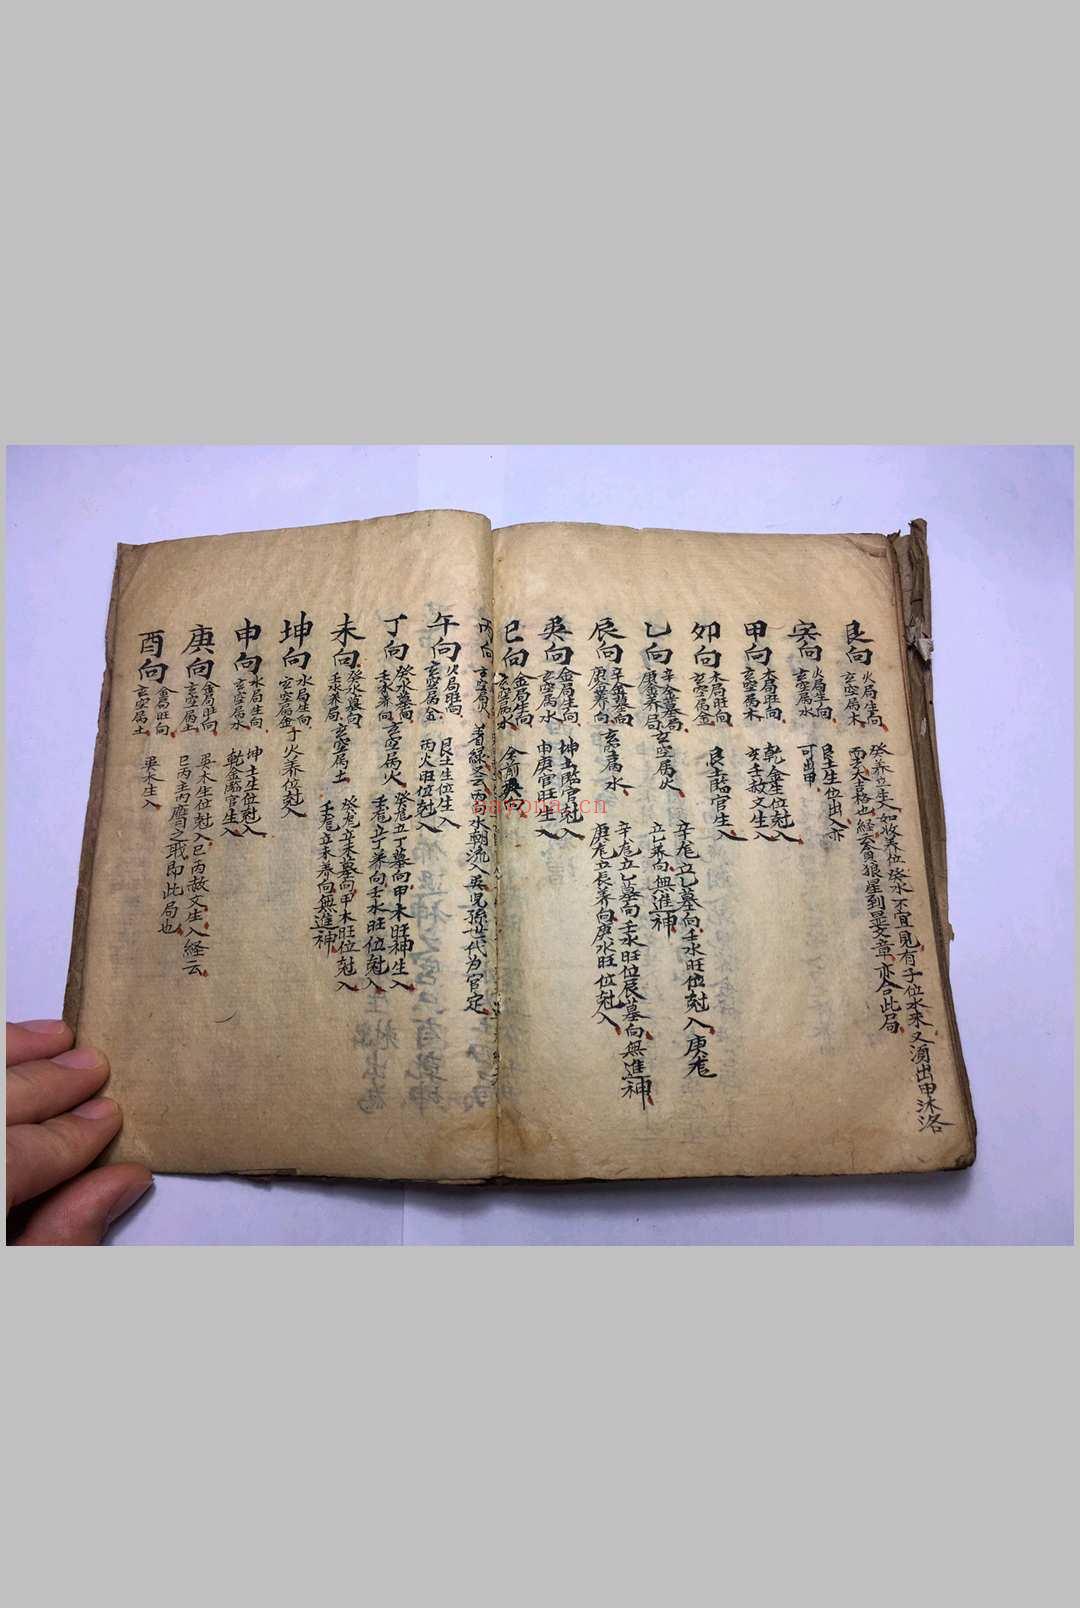 艮向 火局生向 玄空属木 癸养位生入如收养位癸水不宜見有子位水来又湏出甲沐浴
丙 大吉格也経云貪狼星到显文章亦合此局
寅向 火局生向 玄空属水 艮土生位出入亦可出甲
甲向 木局旺向 玄空属木 乾金生位尅入 亥壬赦文生入
卯向 木局旺向 玄空属金 艮土臨官生入
乙向 辛金墓局 庚金养局 玄空属火 辛尨立乙墓向壬水旺位尅入庚尨
立乙养向無進神
辰向 辛金墓向 庚金养向 玄空属水 辛尨立乙墓向壬水旺位辰墓向無進神
庚尨立辰养向庚水旺位尅入
巽向 金局生向 玄空属水 坤土臨官尅入 申庚官旺生入
巳向 金局生向 玄空属水 金前
丙向 玄空属火 丙水朝流入 兒孫世代为官定
午向 火局旺向 玄空属金 艮土生位生入 丙火旺位尅入
丁向 癸水墓向 壬水养向 玄空属火 癸尨立丁墓向甲木旺神生入
壬尨立丁养向壬水旺位尅入
未向 癸水墓向 壬水养局 玄空属土 癸尨立未墓向甲木旺位尅入
壬尨立未养向無進神
坤向 水局生向 玄空属金 丁火养位尅入
申向 水局生向 玄空属水 坤土生位尅入 乾金臨官生入
庚向 金局旺向 玄空属土 巽木生位尅入巳丙赦文生入経云
巳丙主丙膺之戢即此局也
酉向 金局旺向 玄空属土 巽木生入
sayona.cn